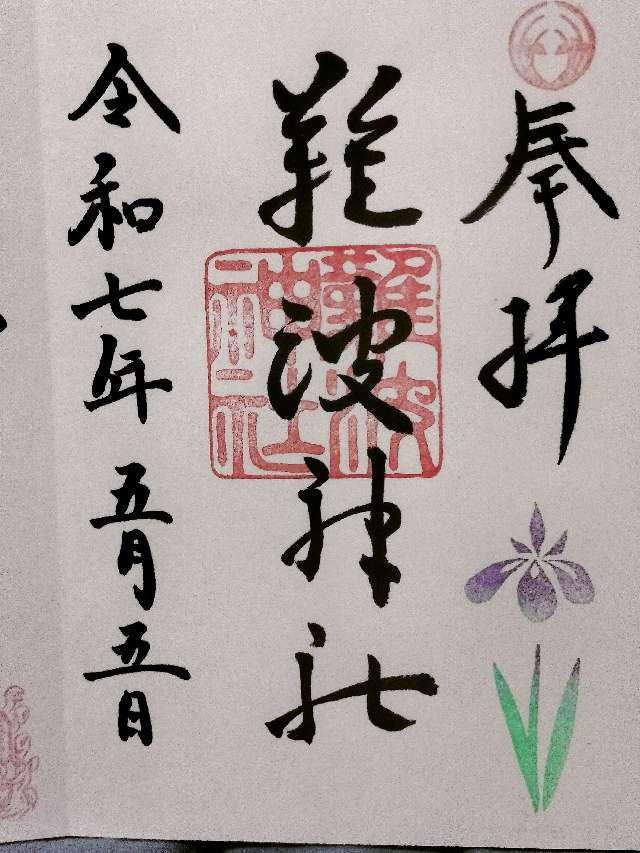 奉拝
難波神社
難波神社
令和七年五月五日